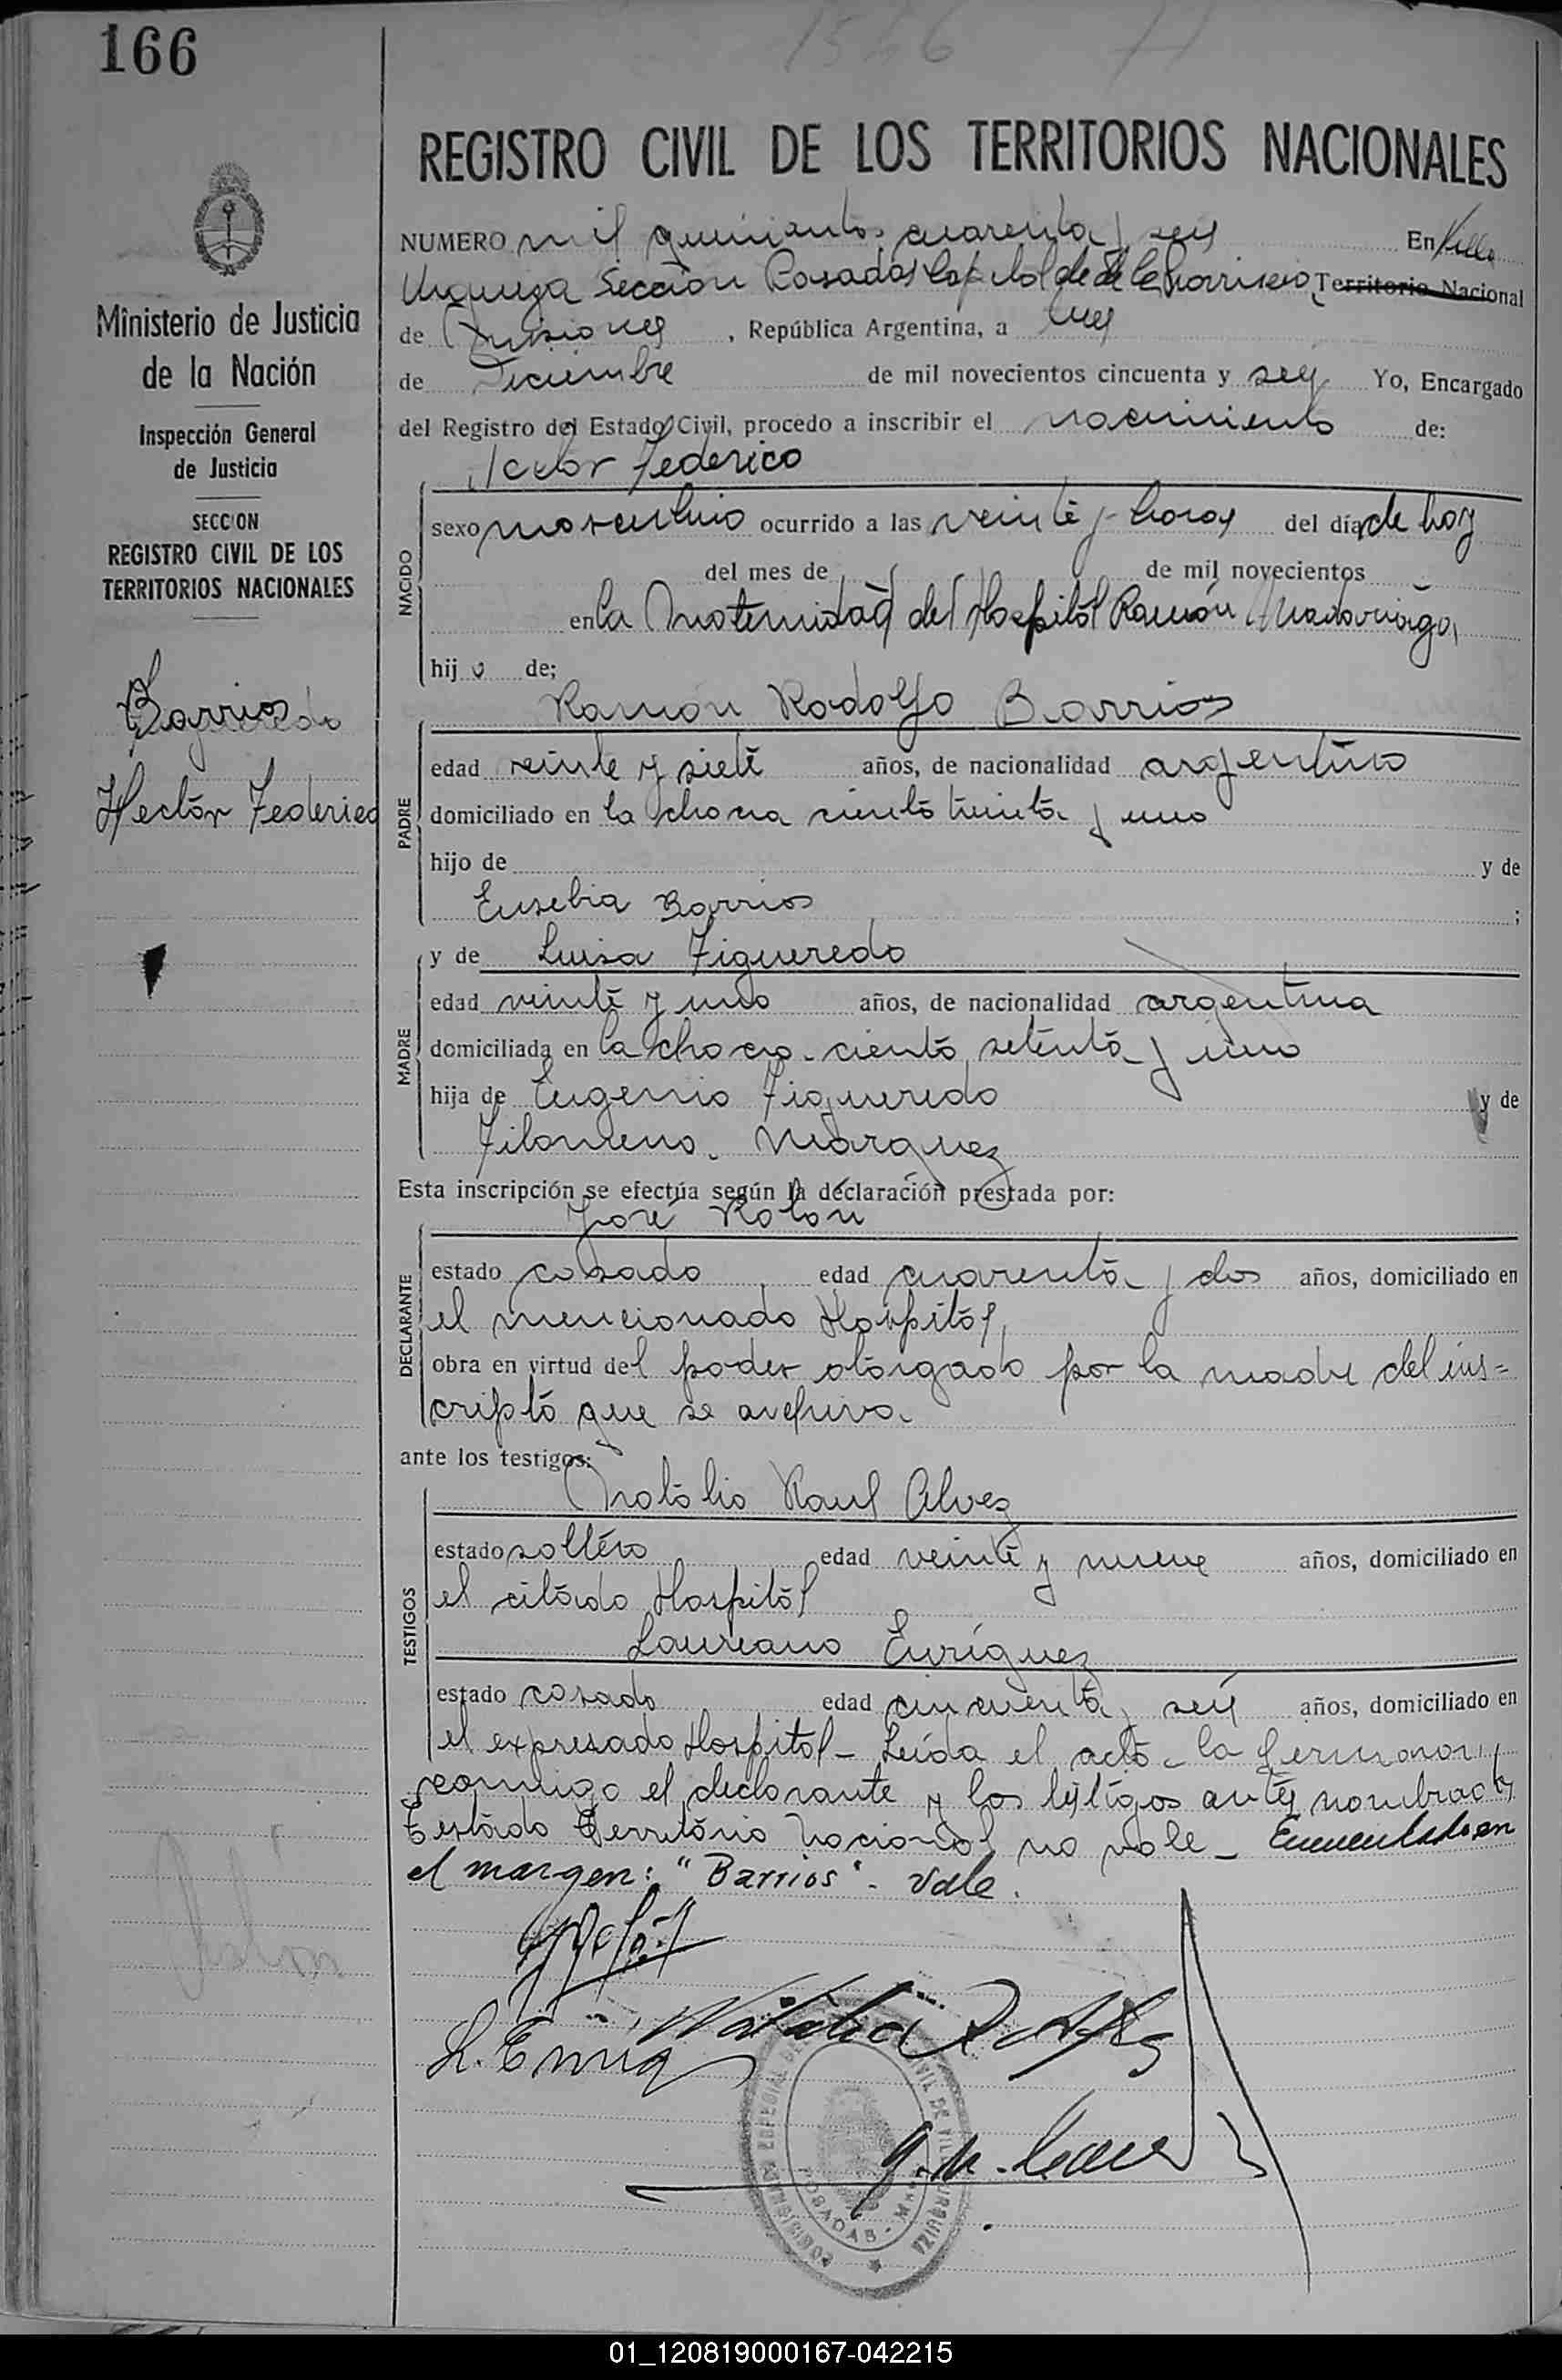 166
1546
REGISTRO CIVIL DE LOS TERRITORIOS NACIONALES
Ministerio de Justicia
de la Nación
Inspección General
de Justicia
SECCION
REGISTRO CIVIL DE LOS
TERRITORIOS NACIONALES
Barrios
Hector Federico
NUMERO mil quinientos cuarenta y seis En Villa
Urquiza Sección Posadas Capital de la Provincia Territorio Nacional
de Misiones , República Argentina, a tres
de Diciembre de mil novecientos cincuenta y seis Yo, Encargado
del Registro del Estado Civil, procedo a inscribir el nacimiento de:
Hector Federico
NACIDO
sexo masculino ocurrido a las veinte y horas del día de hoy
del mes de de mil novecientos
en la Maternidad del Hospital Ramón Madariaga,
hijo de;
Ramón Rodolfo Barrios
PADRE
edad veinte y siete años, de nacionalidad argentino
domiciliado en la chacra ciento treinta y uno
hijo de y de
Eusebia Barrios ;
y de Luisa Figueredo
MADRE
edad veinte y uno años, de nacionalidad argentina
domiciliada en la chacra ciento setenta y uno
hija de Eugenio Figueredo y de
Filomena Marquez
Esta inscripción se efectúa según la declaración prestada por:
José Rolon
DECLARANTE
estado casado edad cuarenta y dos años, domiciliado en
el mencionado Hospital,
obra en virtud del poder otorgado por la madre del ins=
cripto que se archiva.
ante los testigos:
Natalio Raul Alvez
TESTIGOS
estado soltero edad veinte y nueve años, domiciliado en
el citado Hospital
Laureano Enríquez
estado casado edad cincuenta y seis años, domiciliado en
el expresado Hospital - Leída el acta la firmaron
conmigo el declarante y los testigos antes nombrados
Testado Territorio Nacional no vale - Enmendado en
el margen: "Barrios". Vale.
01_120819000167-042215